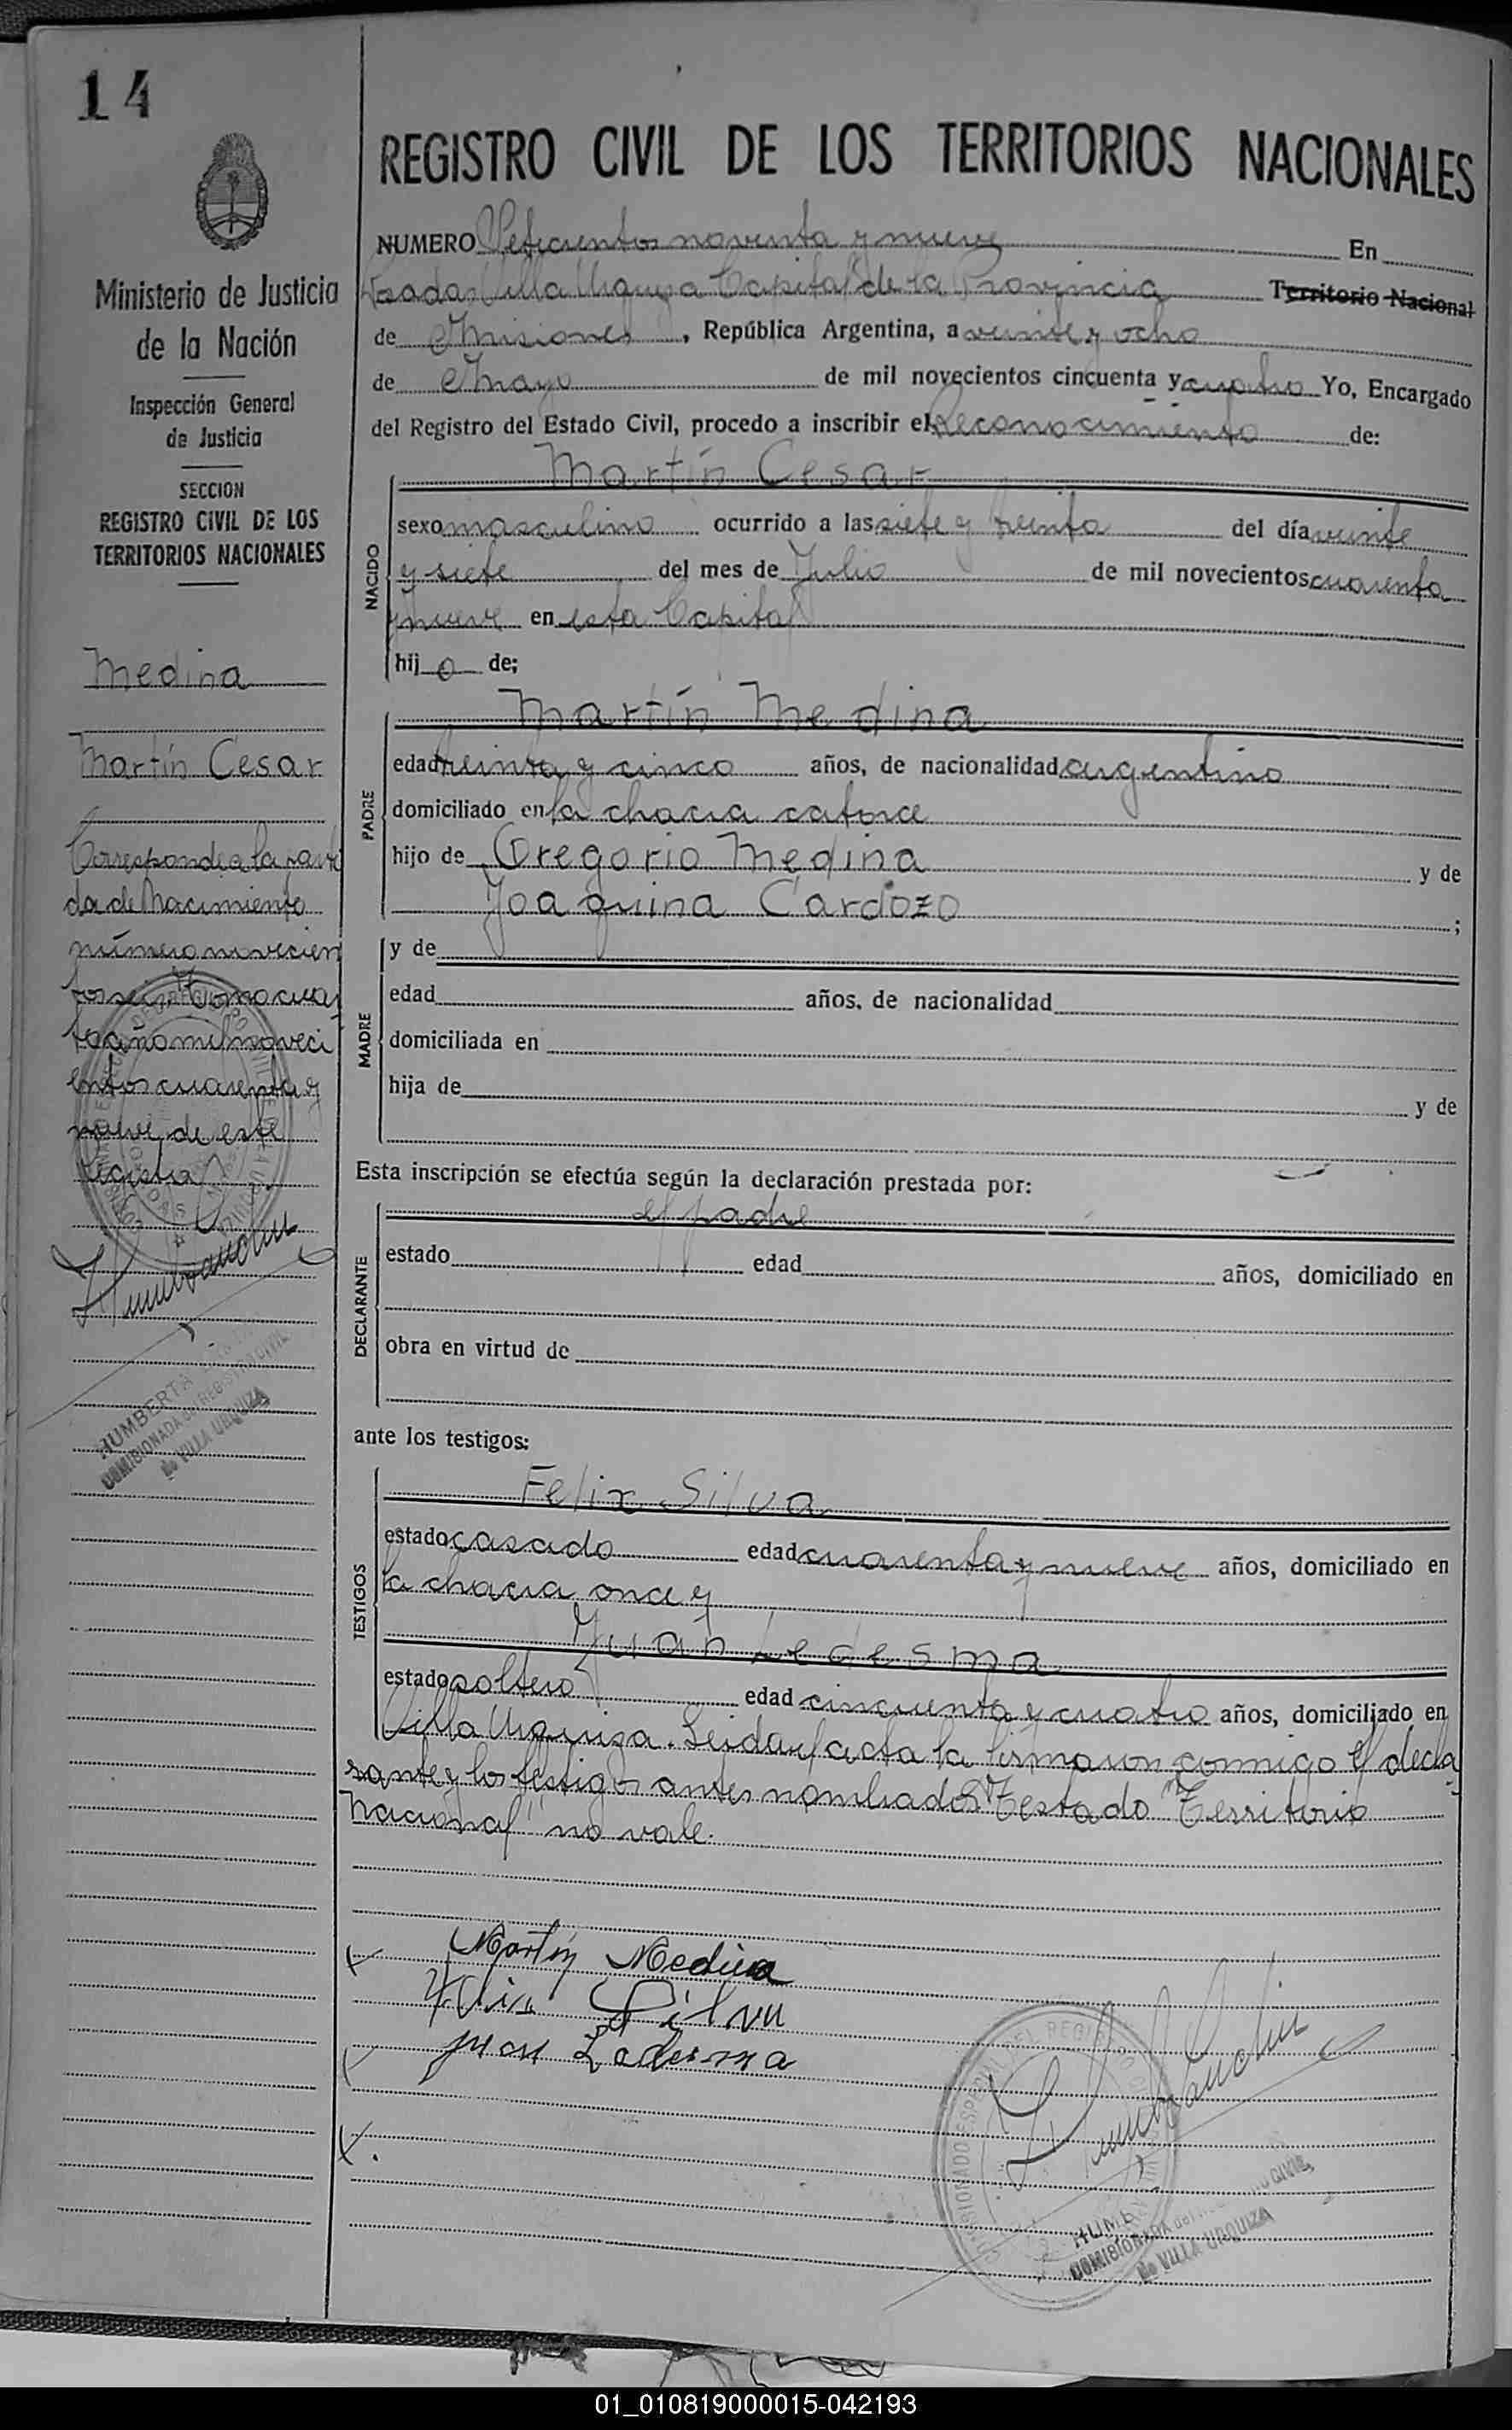 14
REGISTRO CIVIL DE LOS TERRITORIOS NACIONALES
Ministerio de Justicia
de la Nación
Inspección General
de Justicia
SECCION
REGISTRO CIVIL DE LOS
TERRITORIOS NACIONALES
Medina
Martín Cesar
Corresponde a la parti
da de Nacimiento
número novecien
tos seis tomo cuar
to año mil noveci
entos cuarenta y
nueve de este
registro
HUMBERTA
COMISIONADA del REGISTRO CIVIL
de VILLA URQUIZA
NUMERO Setecientos noventa y nueve En
Posadas Villa Urquiza Capital de la Provincia Territorio Nacional
de Misiones, República Argentina, a veinte y ocho
de Mayo de mil novecientos cincuenta y cuatro Yo, Encargado
del Registro del Estado Civil, procedo a inscribir el Reconocimiento de:
Martín Cesar
NACIDO
sexo masculino ocurrido a las siete y treinta del día veinte
y siete del mes de Julio de mil novecientos cuarenta
y nueve en esta Capital
hijo de;
Martín Medina
PADRE
edad treinta y cinco años, de nacionalidad argentino
domiciliado en la chacra catorce
hijo de Gregorio Medina y de
Joaquina Cardozo;
MADRE
y de
edad años, de nacionalidad
domiciliada en
hija de y de
Esta inscripción se efectúa según la declaración prestada por:
el padre
DECLARANTE
estado edad años, domiciliado en
obra en virtud de
ante los testigos:
Felix Silva
TESTIGOS
estado casado edad cuarenta y nueve años, domiciliado en
la chacra once y
Juan Ledesma
estado soltero edad cincuenta y cuatro años, domiciliado en
Villa Urquiza. Leida el acta la firmaron conmigo el decla
rante y los testigos antes nombrados. Testado "Territorio
Nacional" no vale.
Martín Medina
Felix Silva
Juan Ledesma
COMISIONADA del REGISTRO CIVIL
de VILLA URQUIZA
01_010819000015-042193